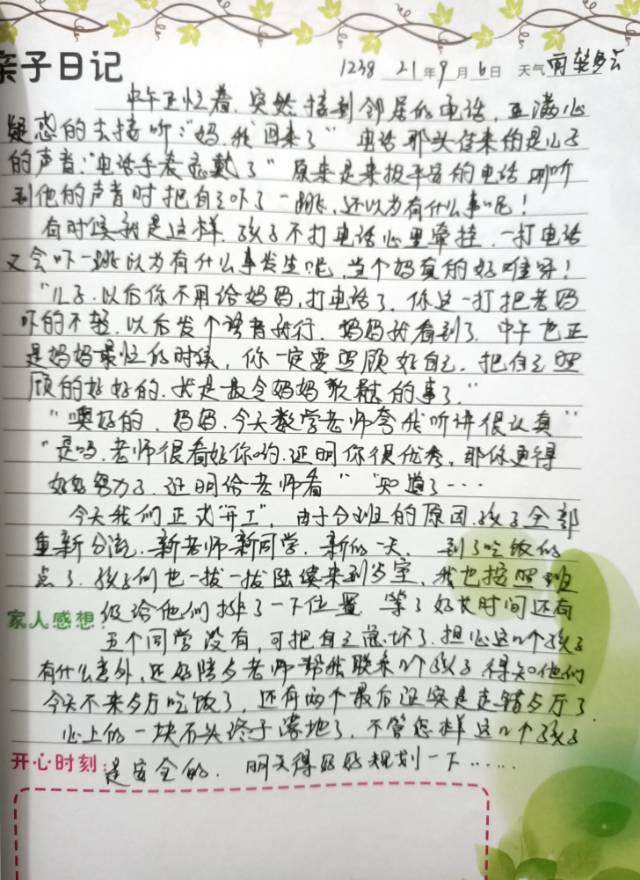 亲子日记 1238 21年9月6日 天气 雨转多云
中午正忙着，突然接到邻居的电话，正满心
疑惑的去接听："妈，我回来了"电话那头传来的是儿子
的声音："电话手表忘戴了"原来是来报平安的电话，刚听
到他的声音时把自己吓了一跳，还以为有什么事呢！
有时候就是这样，孩子不打电话心里牵挂，一打电话
又会吓一跳以为有什么事发生呢，当个妈真的好难呀！
"儿子，以后你不用给妈妈打电话了，你这一打把老妈
吓的不轻，以后发个语音就行，妈妈我看到了，中午也正
是妈妈最忙的时候，你一定要照顾好自己，把自己照
顾的好好的，我是最令妈妈欣慰的事了。"
"噢好的，妈妈，今天数学老师夸我听讲很认真"
"是吗，老师很看好你哟，证明你很优秀，那你更得
好好努力了，证明给老师看""知道了……
今天我们正式"开工"，由于分班的原因，孩子全部
重新分流，新老师新同学，新的一天，到了吃饭的
点了，孩子们也一拨一拨陆续来到，我也按照班
家人感想：级给他们排了一下位置，等了好长时间还有
五个同学没有，可把自己急坏了，担心这几个孩子
有什么意外，还好老师帮我联系几个孩子，得知他们
今天不来吃饭了，还有两个最后证实是走错了，
心上的一块石头终于落地了，不管怎样这几个孩子
开心时刻：是安全的，明天得好好规划一下……